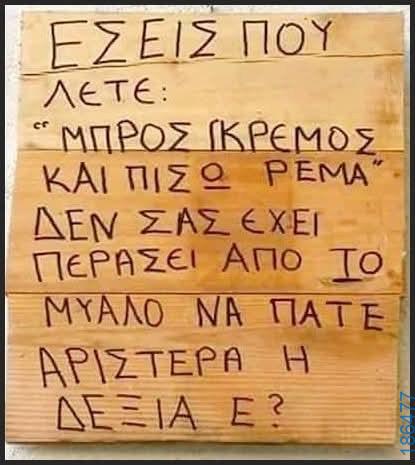 ΕΣΕΙΣ ΠΟΥ
ΛΕΤΕ:
“ΜΠΡΟΣ ΓΚΡΕΜΟΣ
ΚΑΙ ΠΙΣΩ ΡΕΜΑ”
ΔΕΝ ΣΑΣ ΕΧΕΙ
ΠΕΡΑΣΕΙ ΑΠΟ ΤΟ
ΜΥΑΛΟ ΝΑ ΠΑΤΕ
ΑΡΙΣΤΕΡΑ Η
ΔΕΞΙΑ Ε?
186477